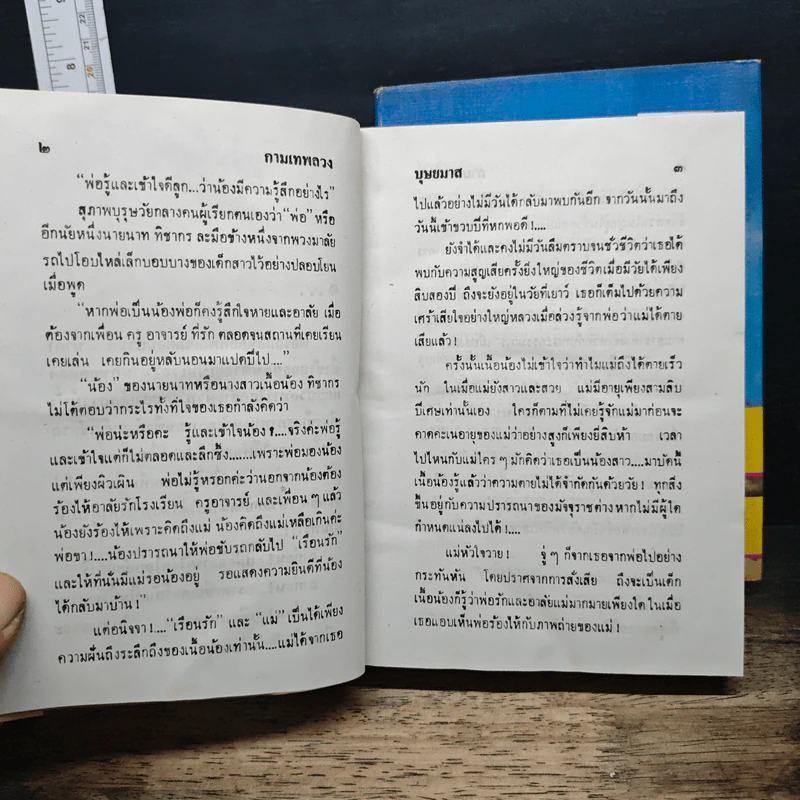 8
9
22
21
20
๒
กามเทพลวง
“พ่อรู้และเข้าใจดีลูก...ว่าน้องมีความรู้สึกอย่างไร”
สุภาพบุรุษวัยกลางคนผู้เรียกตนเองว่า “พ่อ” หรือ
อีกนัยหนึ่งนายนาท ทิชากร ละมือข้างหนึ่งจากพวงมาลัย
รถไปโอบไหล่เล็กบอบบางของเด็กสาวไว้อย่างปลอบโยน
เมื่อพูด
“หากพ่อเป็นน้องพ่อก็คงรู้สึกใจหายและอาลัย เมื่อ
ต้องจากเพื่อน ครู อาจารย์ ที่รัก ตลอดจนสถานที่เคยเรียน
เคยเล่น เคยกินอยู่หลับนอนมาแปดปีไป....”
“น้อง” ของนายนาทหรือนางสาวเนื้อน้อง ทิชากร
ไม่โต้ตอบว่ากระไรทั้งที่ใจของเธอกำลังคิดว่า
“พ่อน่ะหรือคะ รู้และเข้าใจน้อง ?....จริงค่ะพ่อรู้
และเข้าใจแต่ก็ไม่ตลอดและลึกซึ้ง.......เพราะพ่อมองน้อง
แต่เพียงผิวเผิน พ่อไม่รู้หรอกค่ะว่านอกจากน้องต้อง
ร้องไห้อาลัยรักโรงเรียน ครูอาจารย์ และเพื่อน ๆ แล้ว
น้องยังร้องไห้เพราะคิดถึงแม่ น้องคิดถึงแม่เหลือเกินค่ะ
พ่อขา !....น้องปรารถนาให้พ่อขับรถกลับไป “เรือนรัก”
และให้ที่นั่นมีแม่รอน้องอยู่ รอแสดงความยินดีที่น้อง
ได้กลับมาบ้าน !”
แต่อนิจจา !....“เรือนรัก” และ “แม่” เป็นได้เพียง
ความฝันถึงระลึกถึงของเนื้อน้องเท่านั้น....แม่ได้จากเธอ
บุษยมาส
๓
ไปแล้วอย่างไม่มีวันได้กลับมาพบกันอีก จากวันนั้นมาถึง
วันนี้เข้าขวบปีที่หกพอดี !....
ยังจำได้และคงไม่มีวันลืมตราบจนชั่วชีวิตว่าเธอได้
พบกับความสูญเสียครั้งยิ่งใหญ่ของชีวิตเมื่อมีวัยได้เพียง
สิบสองปี ถึงจะยังอยู่ในวัยที่เยาว์ เธอก็เต็มไปด้วยความ
เศร้าเสียใจอย่างใหญ่หลวงเมื่อล่วงรู้จากพ่อว่าแม่ได้ตาย
เสียแล้ว !
ครั้งนั้นเนื้อน้องไม่เข้าใจว่าทำไมแม่ถึงได้ตายเร็ว
นัก ในเมื่อแม่ยังสาวและสวย แม่มีอายุเพียงสามสิบ
ปีเศษเท่านั้นเอง ใครก็ตามที่ไม่เคยรู้จักแม่มาก่อนจะ
คาดคะเนอายุของแม่ว่าอย่างสูงก็เพียงยี่สิบห้า เวลา
ไปไหนกับแม่ใคร ๆ มักคิดว่าเธอเป็นน้องสาว....มาบัดนี้
เนื้อน้องรู้แล้วว่าความตายไม่ได้จำกัดกันด้วยวัย ! ทุกสิ่ง
ขึ้นอยู่กับความปรารถนาของมัจจุราชต่างหากไม่มีผู้ใด
กำหนดแน่ลงไปได้ !....
แม่หัวใจวาย ! จู่ ๆ ก็จากเธอจากพ่อไปอย่าง
กระทันหัน โดยปราศจากการสั่งเสีย ถึงจะเป็นเด็ก
เนื้อน้องก็รู้ว่าพ่อรักและอาลัยแม่มากมายเพียงใด ในเมื่อ
เธอแอบเห็นพ่อร้องไห้กับภาพถ่ายของแม่ !